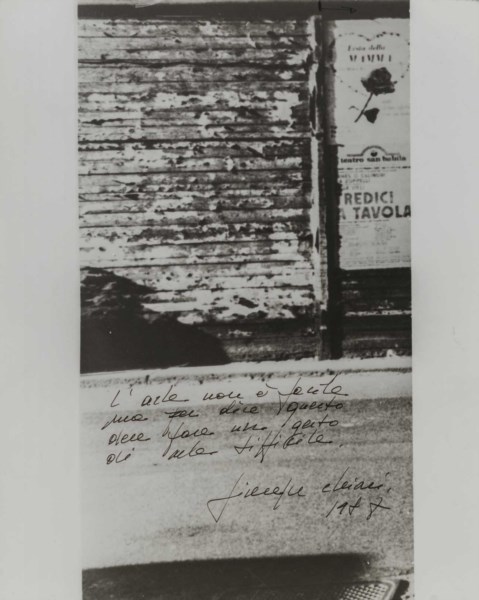 Festa della
MAMMA
teatro san babila
TREDICI
A TAVOLA
L'arte non è facile
ma per dire questo
devo fare un gesto
di arte difficile.
Giuseppe Chiari.
1977